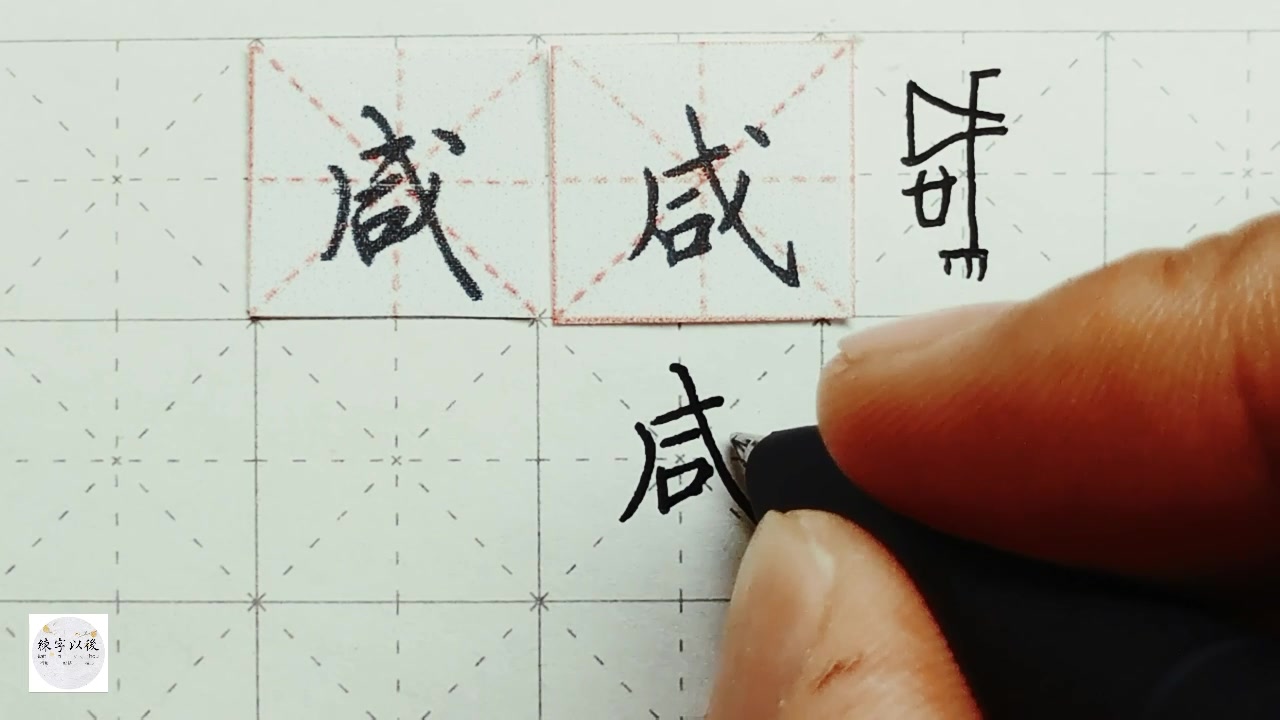 咸 咸
咸
練字以後